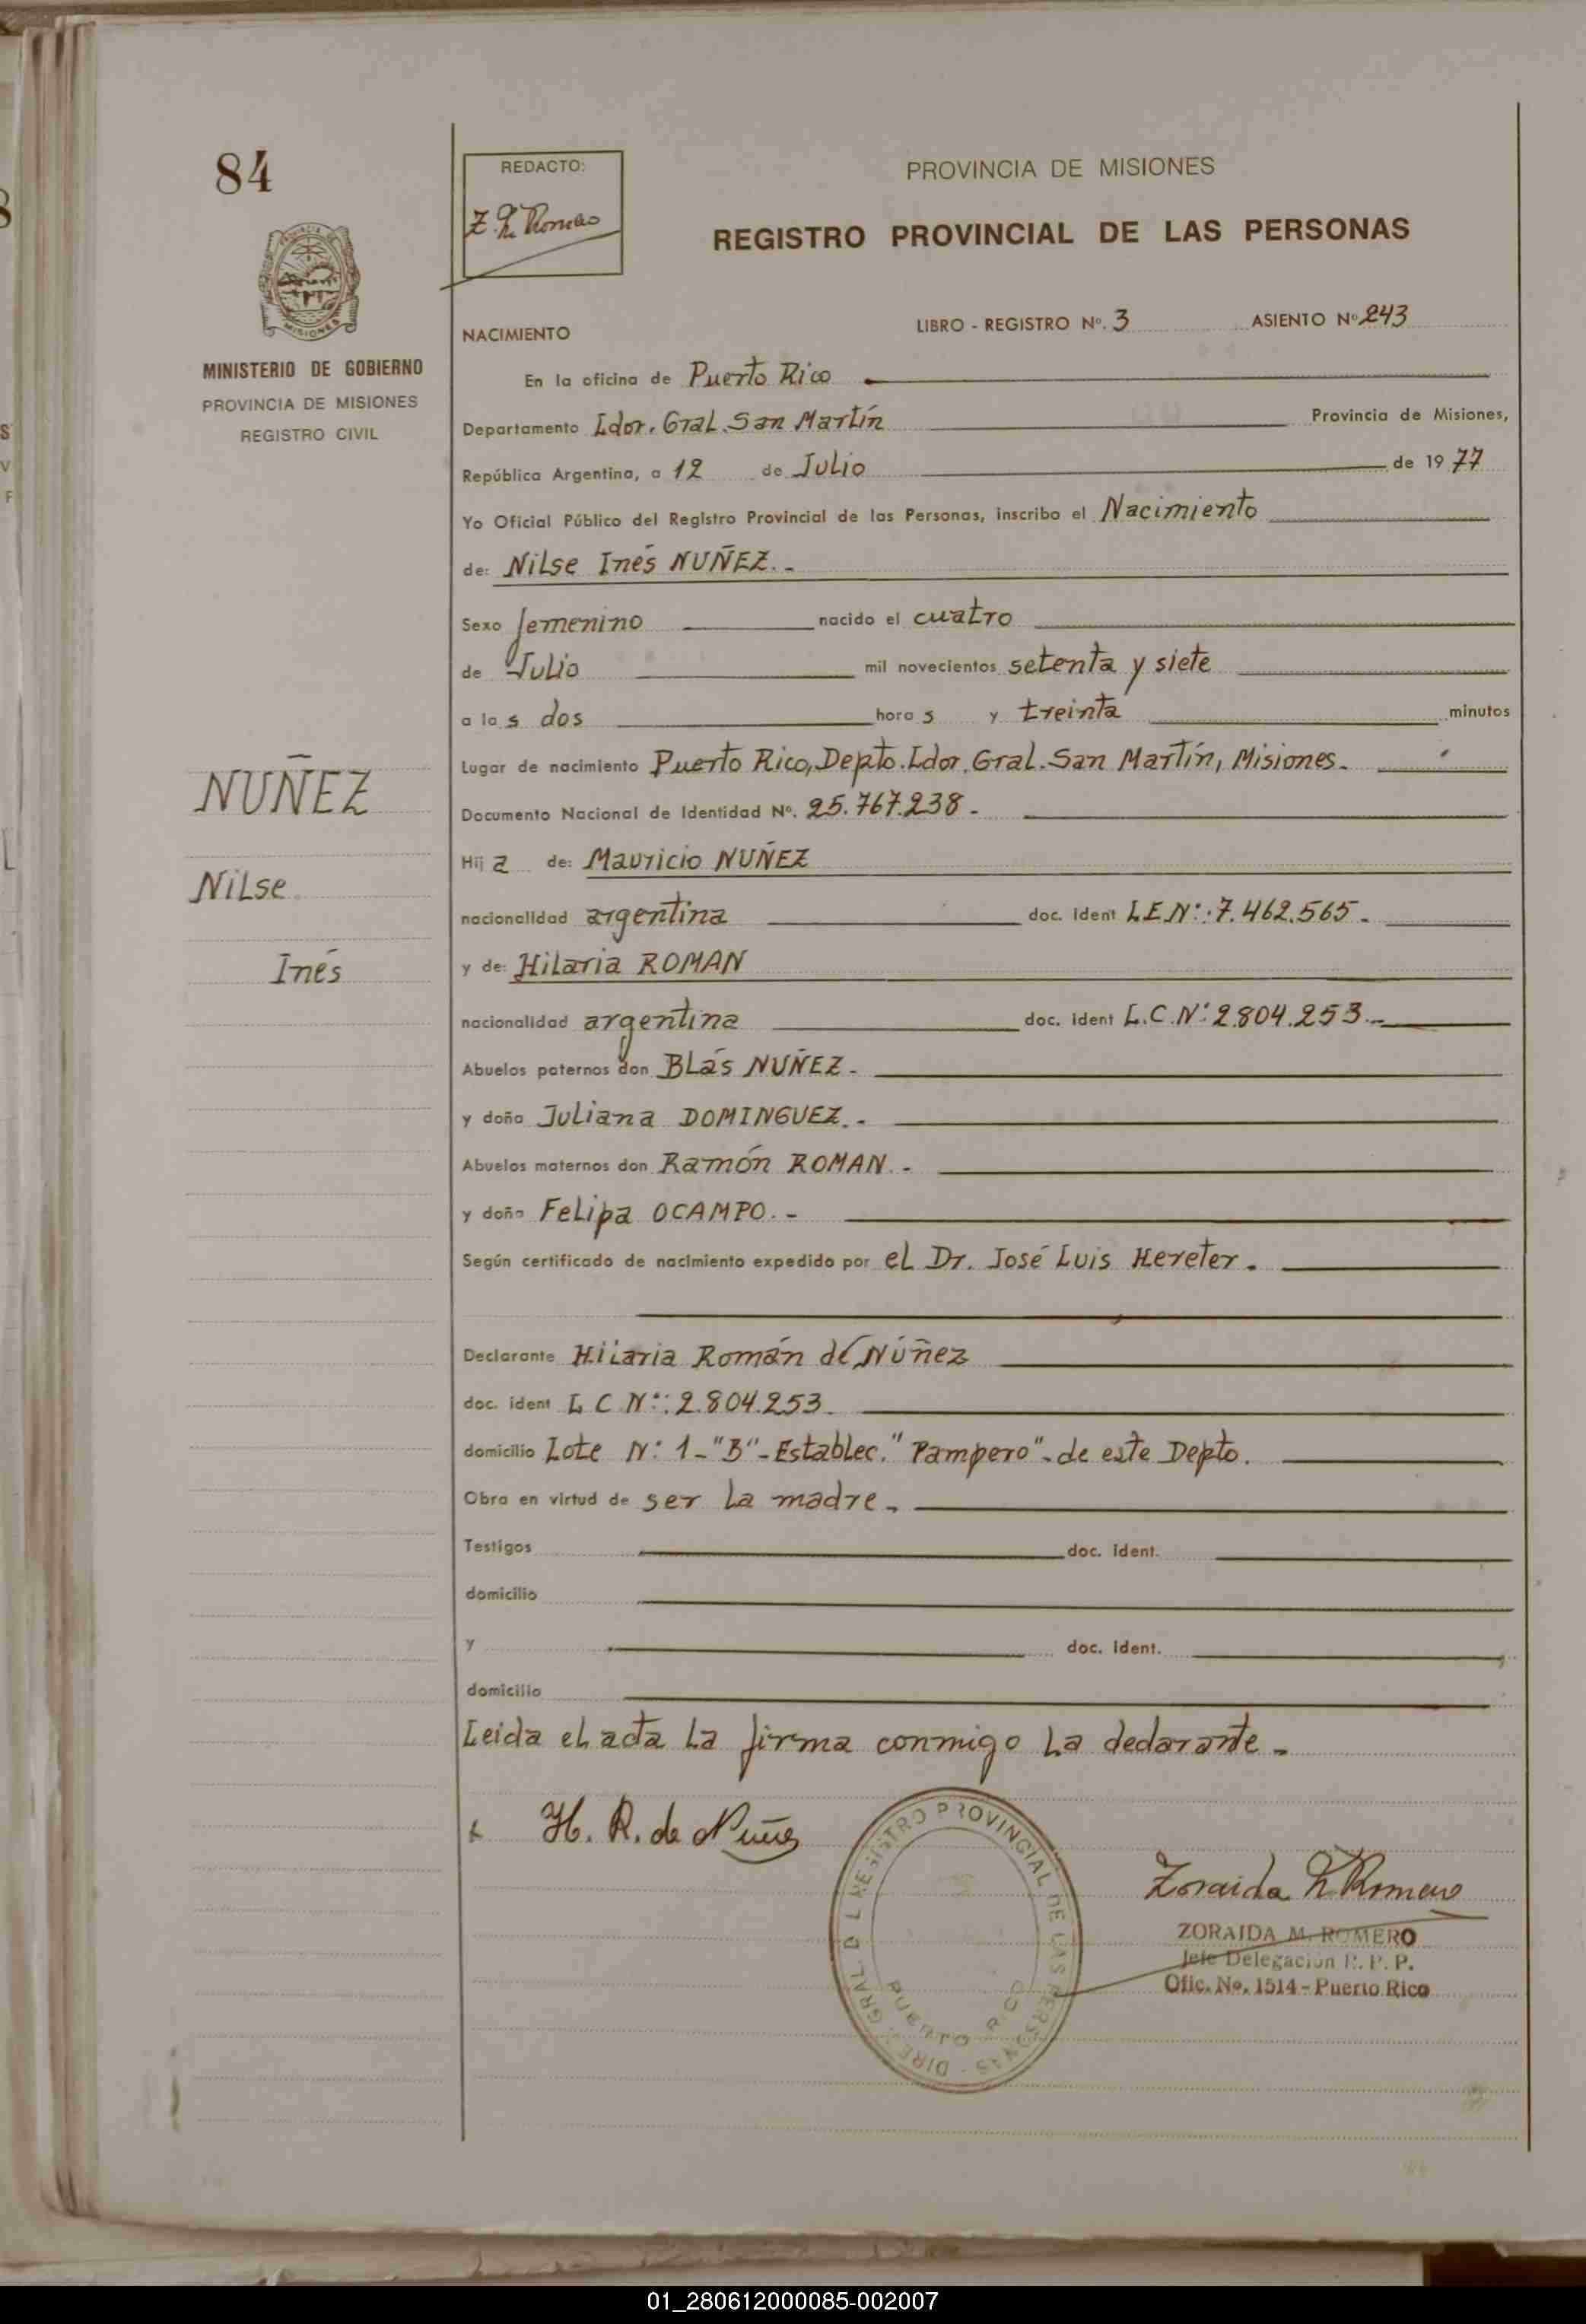 84
REDACTO:
Z. M. Romero
PROVINCIA DE MISIONES
REGISTRO PROVINCIAL DE LAS PERSONAS
MISIONES
MINISTERIO DE GOBIERNO
PROVINCIA DE MISIONES
REGISTRO CIVIL
NACIMIENTO
LIBRO - REGISTRO Nº. 3 ASIENTO Nº 243
En la oficina de Puerto Rico
Departamento Ldor. Gral. San Martín Provincia de Misiones,
República Argentina, a 12 de Julio de 1977
Yo Oficial Público del Registro Provincial de las Personas, inscribo el Nacimiento
de: Nilse Inés NUÑEZ.-
Sexo femenino nacido el cuatro
de Julio mil novecientos setenta y siete
a las dos horas y treinta minutos
Lugar de nacimiento Puerto Rico, Depto. Ldor. Gral. San Martín, Misiones.
Documento Nacional de Identidad Nº. 25.767.238-
Hija de: Mauricio NUÑEZ
nacionalidad argentina doc. ident L.E.Nº: 7.462.565-
y de: Hilaria ROMAN
nacionalidad argentina doc. ident L.C.Nº: 2.804.253.-
Abuelos paternos don Blás NUÑEZ-
y doña Juliana DOMINGUEZ.-
Abuelos maternos don Ramón ROMAN.-
y doña Felipa OCAMPO.-
Según certificado de nacimiento expedido por el Dr. José Luis Hereter.
Declarante Hilaria Román de Núñez
doc. ident L C Nº: 2.804.253.
domicilio Lote Nº 1-"B"-Establec. "Pampero"-de este Depto.
Obra en virtud de ser la madre.
Testigos doc. ident.
domicilio
y doc. ident.
domicilio
Leida el acta la firma conmigo la declarante-
NUÑEZ
Nilse
Inés
H. R. de Nuñez
DIREC. GRAL DEL REGISTRO PROVINCIAL DE LAS PERSONAS
PUERTO RICO
Zoraida M Romero
ZORAIDA M. ROMERO
Jefe Delegación R. P. P.
Ofic. No. 1514 - Puerto Rico
01_280612000085-002007